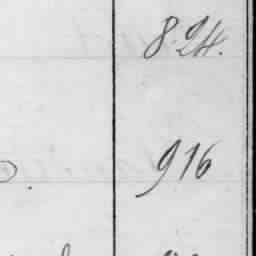 8.24.
916